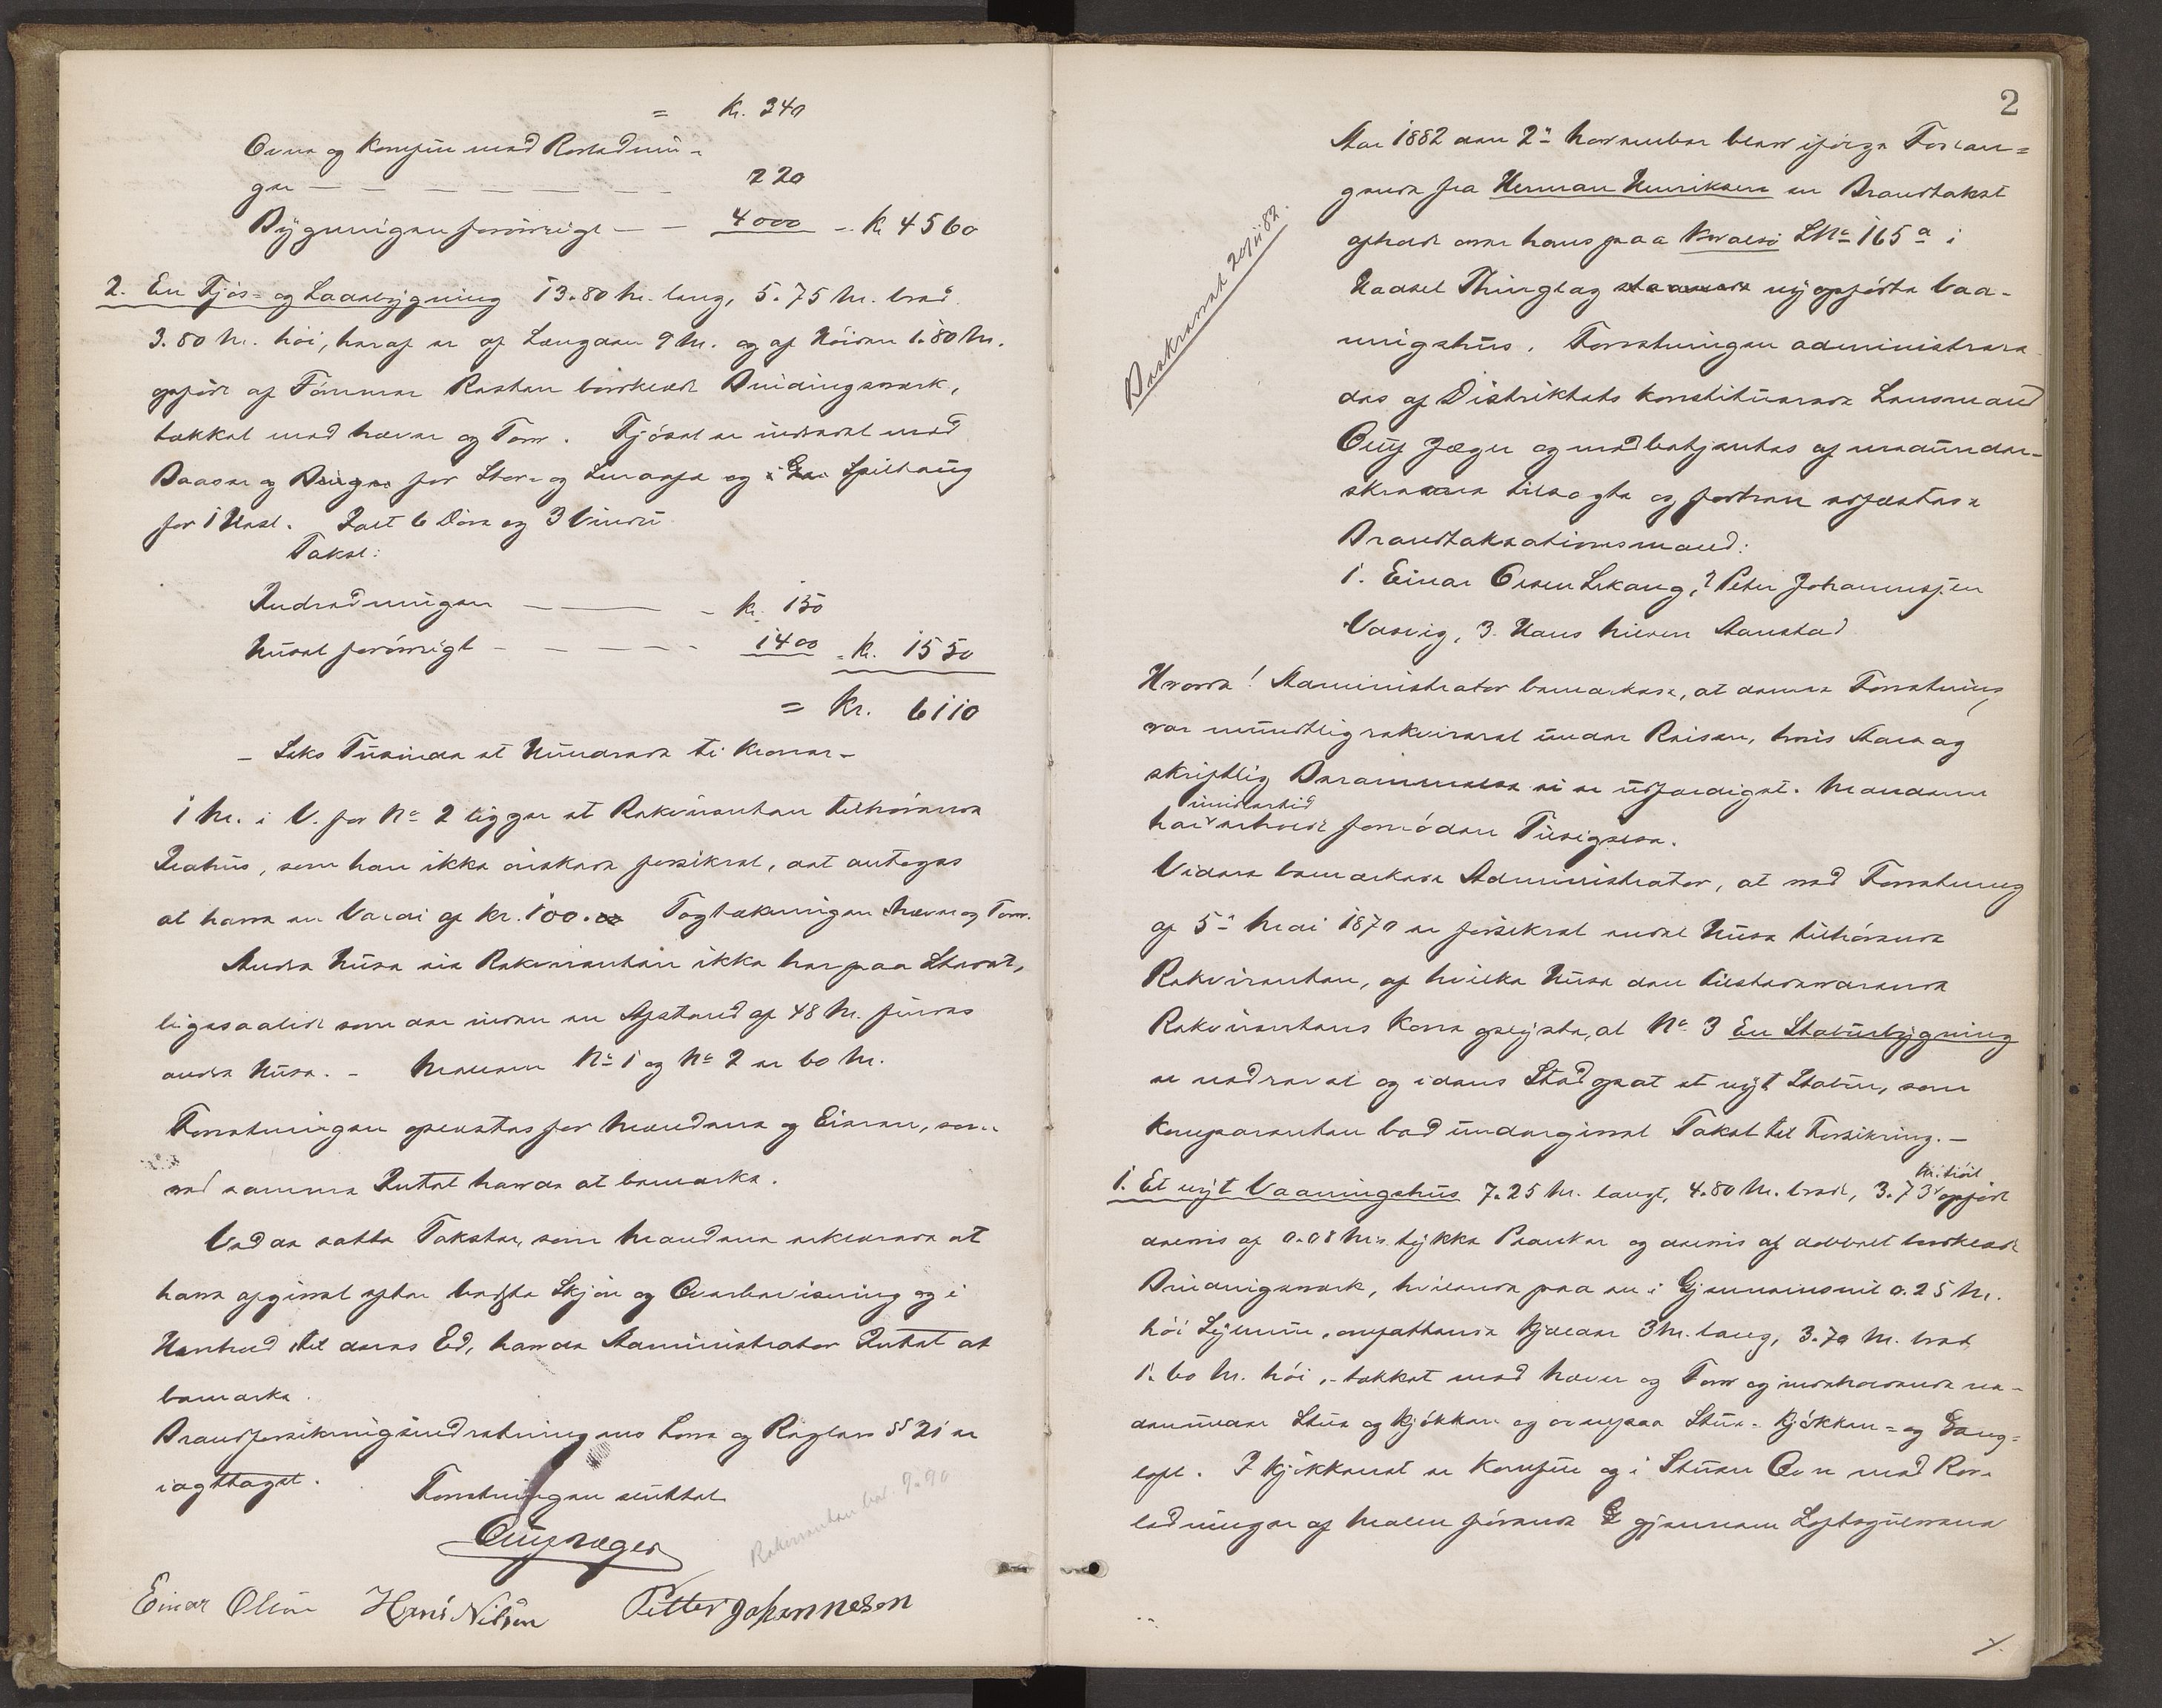 = Kr. 340
Ovne og Komfur med Rørlednin-
ger — — — — — — — 220
Bygningen forøvrigt — — 4000 — Kr 4560
2. En Fjøs- og Ladebygning 13.80 M. lang, 5.75 M. bred
3.80 M. høi, heraf er af Længden 9 M. og af Høiden 1.80 M.
opført af Tømmer Resten bordklædt Bindingsværk,
tækket med Næver og Torv. Fjøset er indredet med
Baase og Binger for Stor- og Smaafæ og Spiltaug
for 1 Hest. Ialt 6 Døre og 3 Vindu
Takst:
Indredningen — — — Kr. 150
Huset forøvrigt — — — — 1400 = Kr. 1550
= Kr. 6110
– Seks Tusinde et Hundrede ti Kroner –
1 M. i V. for No 2 ligger et Rekvirenten tilhørende
Ildhus, som han ikke ønskede forsikret, det antages
at have en Værdi af Kr. 100.00 Tagtækningen Næver og Torv.
Andre Huse eie Rekvirenten ikke har paa Stedet,
ligesaalidt som der inden en Afstand af 48 M. findes
andre Huse. – Mellem No 1 og No 2 er 60 M.
Forretningen oplæstes for Mændene og Eieren, som
ved samme Intet havde at bemærke.
Ved de satte Takster, som Mændene erklærede at
have afgivet efter bedste Skjøn og Overbevisning og i
Henhold til deres Ed, havde Administrator Intet at
bemærke.
Brandforsikringsindretningens Lov og Reglers § 21 er
iagttaget.
Forretningen sluttet
Oluf Jæger
Rekvirenten bet. 9.90
Einar Olsen Hans Nilsen Petter Johannesen
2
Beskrevet 20/11 82.
Aar 1882 den 2den November blev ifølge Forlan-
gende fra Herman Henriksen en Brandtakst
afholdt over hans paa Kvalsø LNo 165 a i
Hadsel Thinglag nyopførte Vaa-
ningshus. Forretningen administrere-
des af Distriktets konstituerede Lensmand
Oluf Jæger og medbetjentes af nedenun-
skrevne tilsagte og forhen edfæstede
Brandtaksationsmænd:
1. Einar Olsen Lekang, 2 Peter Johannessen
Vasvig, 3. Hans Nilsen Maustad
Hvorda! Administrator bemærkede, at denne Forretning
var mundtlig rekvireret under Reisen, hvis Aarsag
skriftlig Berammelse ei er udfærdiget. Mændene
har imidlertid erholdt fornøden Tilsigelse.
Videre bemærkede Administrator, at ved Forretning
af 5te Mai 1870 er forsikret endel Huse tilhørende
Rekvirenten, af hvilke Huse den tilstedeværende
Rekvirentens Kone oplyste, at No 3 En Stabursbygning
er nedrevet og i dens Sted opsat et nyt Stabur, som
Komparenten bad undergivet Takst til Forsikring. –
1. Et nyt Vaaningshus 7.25 M. langt, 4.80 M. bredt, 3.73 M. høit opført
delvis af 0.08 M.s tykke Planker og delvis af dobbelt bordklædt
Bindingsværk, hvilende paa en i Gjennemsnit 0.25 M.
høi Stenmur, omfattende Kjælder 3 M. lang, 3.70 M. bred
1.60 M. høi, – tækket med Næver og Torv og indeholdende ne-
denunder Stue og Kjøkken og ovenpaa Stue-, Kjøkken- og Gang-
loft. I Kjøkkenet er Komfur og i Stuen Ovn med Rør-
ledninger af Malm førende gjennem Loftsgulvene